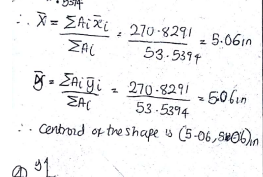 5394
∴ X̄ = ΣAi x̄i / ΣAi = 270.8291 / 53.5394 = 5.06in
ȳ = ΣAi ȳi / ΣAi = 270.8291 / 53.5394 = 5.06in
∴ Centroid of the shape is (5.06, 5.06)in
y